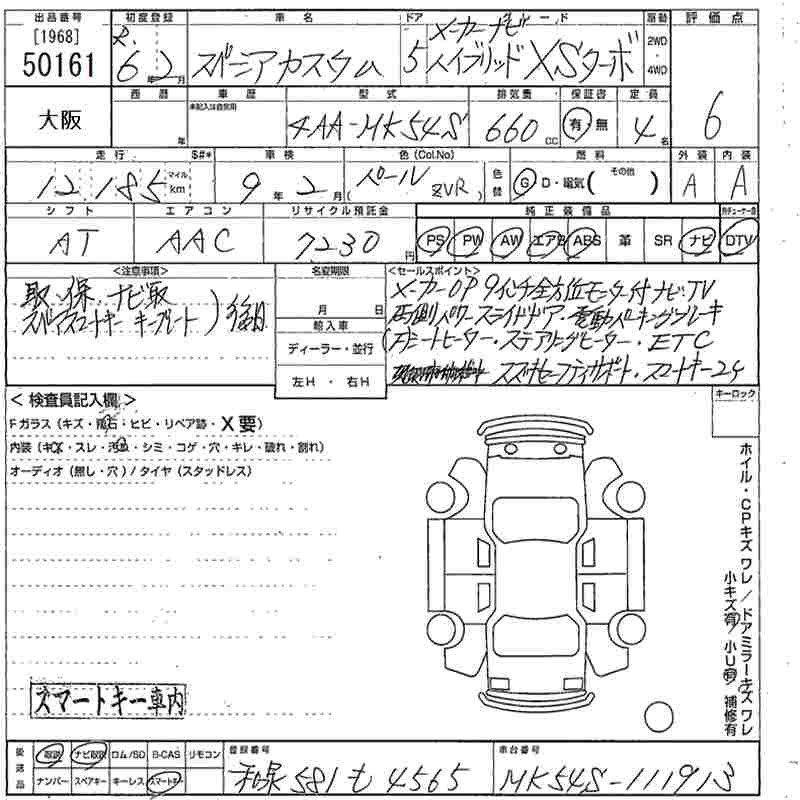 出品番号 初度登録 車名 ドア グレード 駆動 評価点
[1968] R. メーカーナビ 2WD
50161 6年2月 スペーシアカスタム 5 ハイブリッド XSターボ ・4WD 6
西暦 車歴 型式 排気量 保証書 定員
大阪 年 未記入は自家用 4AA-MK54S 660cc 有 無 4名
走行 $#* 車検 色(Col.No) 燃料 外装 内装
12,185 マイル km 9年2月 (パール ZVR) 色替 G・D・電気( その他 ) A A
シフト エアコン リサイクル預託金 純正装備品
AT AAC 7230円 PS PW AW エアB ABS 革 SR ナビ DTV
<注意事項> 名変期限 <セールスポイント>
取・保、ナビ取 後日 メーカーOP 9インチ全方位モニター付ナビ・TV
スペアスマートキー キープレート 月 日 両側パワースライドドア・電動パーキングブレーキ
輸入車 シートヒーター・ステアリングヒーター・ETC
ディーラー・並行 スズキセーフティサポート・スマートキー2ケ
左H ・ 右H
< 検査員記入欄 > キーロック
Fガラス (キズ・飛石・ヒビ・リペア跡・X要)
内装 (キズ・スレ・汚れ・シミ・コゲ・穴・キレ・破れ・割れ)
オーディオ (無し・穴) / タイヤ (スタッドレス)
ホイル・CPキズ ワレ / ドアミラーキズ ワレ
小キズ有 / 小U有 補修有
スマートキー車内
後送品 取説 ナビ取説 ロム/SD B-CAS リモコン 登録番号 車台番号
ナンバー スペアキー キーレス スマートキー 和泉 581 も 4565 MK54S-111913